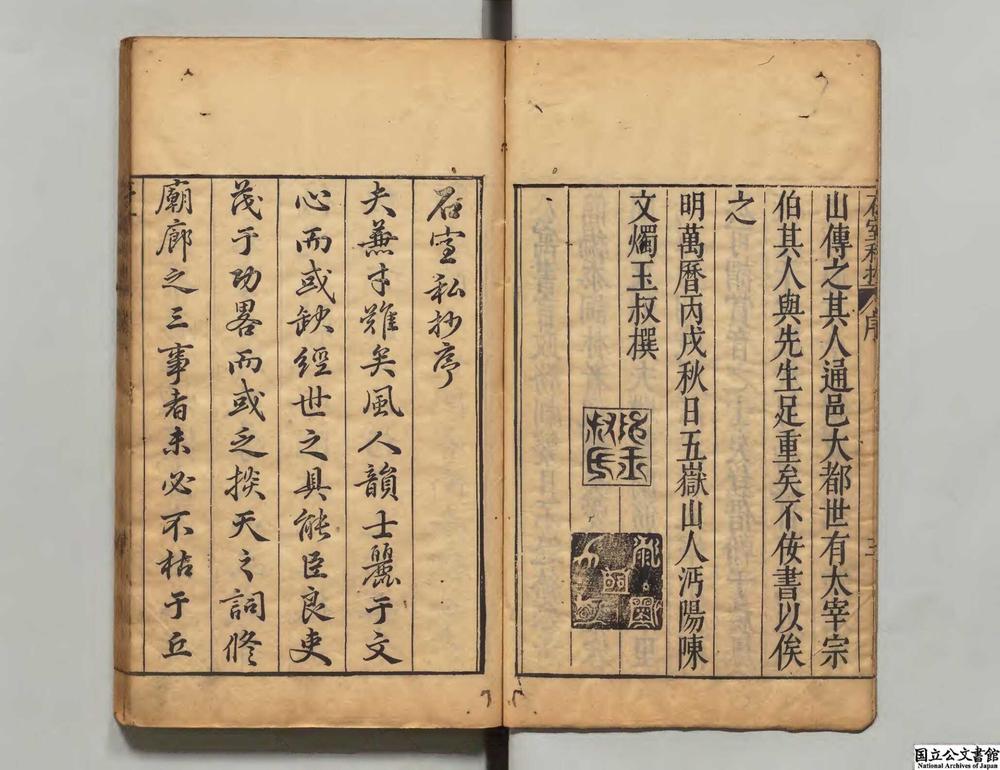 石室私抄 序
山傳之其人通邑大都世有太宰宗
伯其人與先生足重矣不佞書以俟
之
明萬曆丙戌秋日五嶽山人沔陽陳
文燭玉叔撰
石室私抄序
夫兼才難矣風人韻士麗于文
心而或缺經世之具能臣良吏
茂于功畧而或乏掞天之詞修
廟廊之三事者未必不枯于丘
国立公文書館
National Archives of Japan